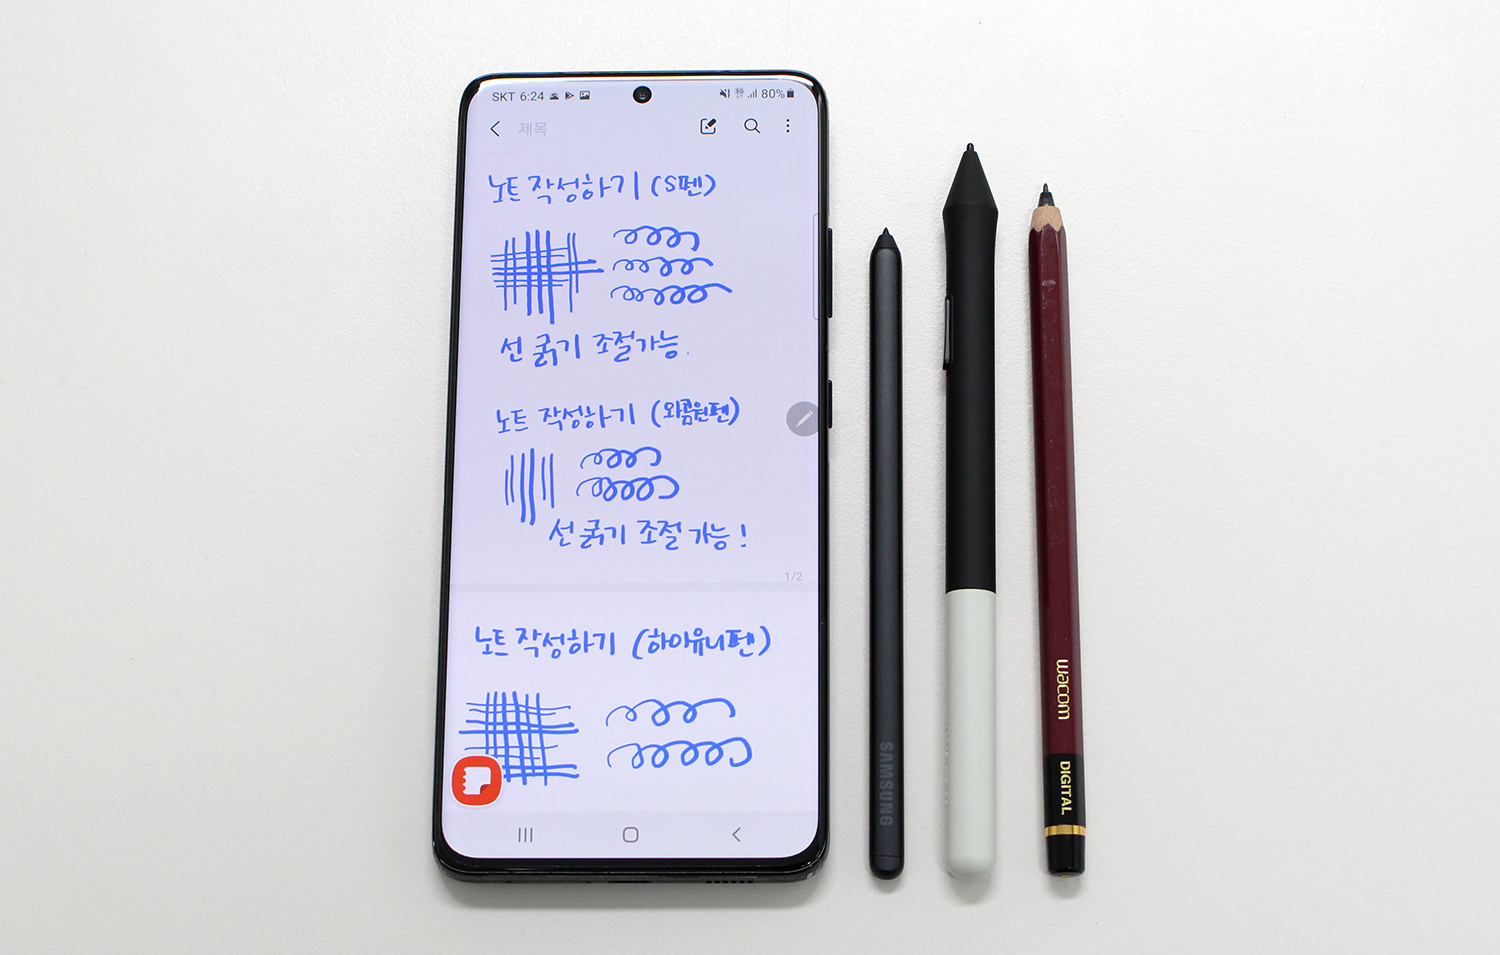 SKT 6:24
5G
80%
제목
노트 작성하기 (S펜)
선 굵기 조절가능.
노트 작성하기 (와콤원펜)
선 굵기 조절 가능!
1/2
노트 작성하기 (하이유니펜)
SAMSUNG
wacom
DIGITAL